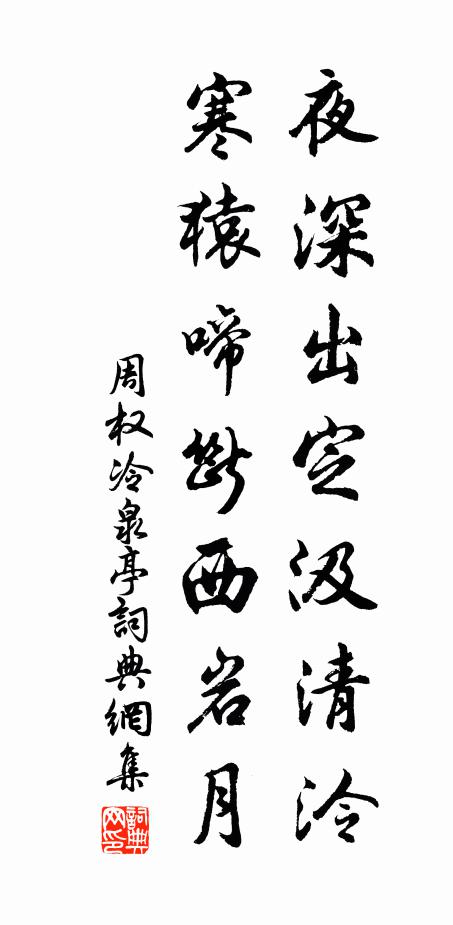 夜深出定汲清泠
寒猿啼斷西岩月
周权冷泉亭詞典網集
詞典网印